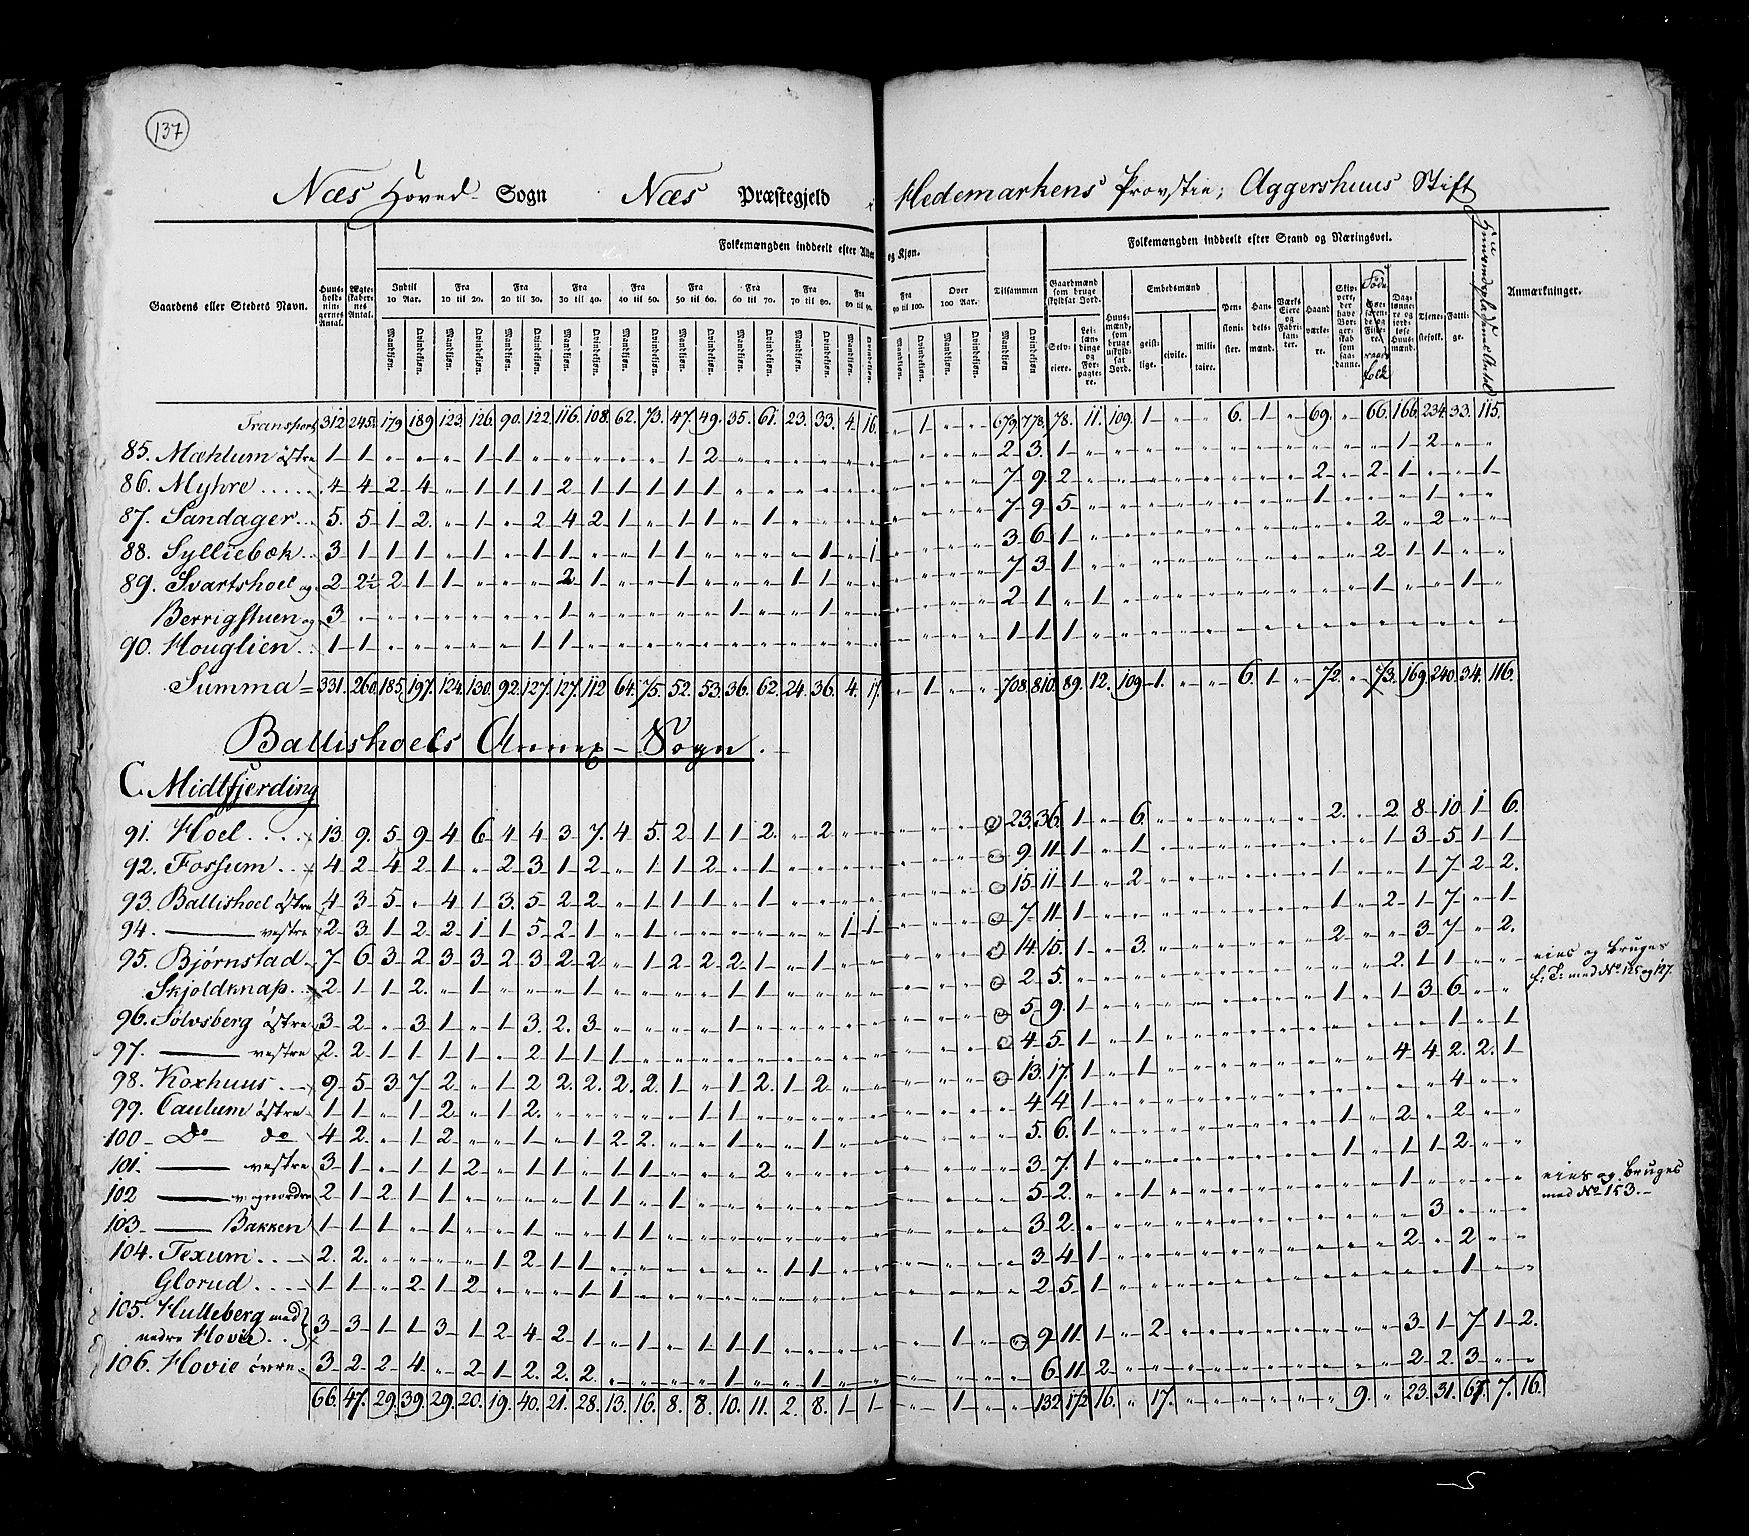 137
Næs Hoved Sogn Næs Præstegjeld i Hedemarkens Provstie, Aggershuus Stift
Gaardens eller Stedets Navn.
Huus-holdnin-gernes Antal.
Ægte-skaber-nes Antal.
Folkemængden inddeelt efter Alder og Kjøn.
Folkemængden inddeelt efter Stand og Næringsvei.
Anmærkninger.
Indtil 10 Aar. Fra 10 til 20. Fra 20 til 30. Fra 30 til 40. Fra 40 til 50. Fra 50 til 60. Fra 60 til 70. Fra 70 til 80. Fra 80 til 90. Fra 90 til 100. Over 100 Aar. Tilsammen
Mandkjøn. Qvindekjøn.
Gaardmænd som bruge skyldsat Jord. Selv-eiere. Lei-læn-dinge og For-pagte-re. Huus-mænd, som bruge uskyld-sat Jord. Embedsmænd geist-lige. civile. mili-taire. Pen-sioni-ster. Han-dels-mænd. Værks Eiere og Fabri-kanter. Haand-værke-re. Dag-lønne-re og jord-løse Huus-mænd. Tjene-stefolk. Fatti-ge.
Transport 312 245 179 189 123 126 90 122 116 108 62 73 47 49 35 61 23 33 4 16 " 1 " " 679 778 78 11 109 1 " " 6 1 " 69 " 66 166 234 33 115
85. Mæhlum østre 1 1 " " " " 1 1 " " " " " 1 2 " " " " " " " " " 2 3 1 " " " " " " " " " " " 1 2 " "
86. Myhre 4 4 2 4 " 1 1 1 2 1 1 1 1 1 " " " " " " " " " " 7 9 2 " " " " " " " " 2 " 2 1 " " 1
87. Sandager 5 5 1 2 " 1 " 2 4 2 1 " 1 1 " 1 " " " " " " " " 7 9 5 " " " " " " " " 1 " " " 1 " "
88. Sylliebæk 3 1 1 1 " 1 " 1 1 " " 1 1 " " " " 1 " 1 " " " " 3 6 1 " " " " " " " " " " 2 " 2 " "
89. Svartshoel og 2 2½ 2 1 1 " " " 2 1 " " 1 " " " 1 1 " " " " " " 7 3 1 " " " " " " " " " " 2 1 1 " "
Berrigstuen og 3 " " " " " " " 1 " " " " " 1 " " 1 " " " " " " 2 1 " 1 " " " " " " " " " 1 " " 1 "
90. Houglien 1 1 " " " " " 1 1 " " " " " " " " " " " " " " " 1 1 1 " " " " " " " " " " " " " " "
Summa = 331 260 185 197 124 130 92 127 127 112 64 75 52 53 36 62 24 36 4 17 " 1 " " 708 810 89 12 109 1 " " 6 1 " 72 " 73 169 240 34 116
Ballishoels Annex-Sogn.
C. Midtfjerding
91. Hoel 13 9 5 9 4 6 4 4 3 7 4 5 2 1 1 2 " 2 " " " " " " 23 36 1 " 6 " " " " " " 2 " 2 8 10 1 6
92. Fossum 4 2 4 2 1 " 2 3 1 2 " 1 1 2 " 1 " " " " " " " " 9 11 1 " 1 " " " " " " " " 1 3 5 1 1
93. Ballishoel østre 4 3 5 " 4 1 3 5 2 2 " 1 1 1 " 1 " " " " " " " " 15 11 1 " 2 " " " " " " 1 " " 1 7 2 2
94. — vestre 2 3 1 2 2 1 1 5 2 1 " 1 " " " " " " 1 1 " " " " 7 11 1 " " " " " " " " 1 " 2 1 7 " 1
95. Bjørnstad 7 6 3 2 3 3 2 3 2 2 " 1 2 2 2 1 " 1 " " " " " " 14 15 1 " 3 " " " " " " 2 " " 3 7 " 2
Skjoldknap 2 1 1 2 " 1 " " " 1 " " " " 1 1 " " " " " " " " 2 5 " " " " " " " " " " " 2 1 1 " " eies og bruges f. T. med No 125 og 127.
96. Sølvsberg østre 3 2 " 3 1 " 1 3 2 3 " " " " 1 " " " " " " " " " 5 9 1 " " " " " " " " 1 " 1 3 6 " "
97. — vestre 2 2 1 1 1 1 " 2 1 1 1 " " " " " " " " " " " " " 4 5 1 " 1 " " " " " " " " " " 1 " 1
98. Koxhuus 9 5 3 7 2 " 1 2 2 2 2 2 1 " 1 2 1 2 " " " " " " 13 17 1 " 1 " " " " " " " " 4 4 2 2 1
99. Caulum østre 1 1 " 1 2 " 1 2 " " " " " 1 1 " " " " " " " " " 4 4 1 " " " " " " " " " " " " 4 " "
100 Do do 4 2 " 1 2 " " 1 " 1 2 2 " " 1 " " 1 " " " " " " 5 6 1 " " " " " " " " 1 " 2 " 2 " "
101. — vestre 3 1 " 1 1 2 " 1 1 " 1 1 " " " 2 " " " " " " " " 3 7 1 " " " " " " " " 1 " 1 1 2 " "
102 — 2 1 2 1 1 " " " " 1 1 " 1 " " " " " " " " " " " 5 2 " " 1 " " " " " " " " 1 " " " " eies og bruges med No 153.
103 — Bakken 1 1 1 " 1 " " 1 " " 1 1 " " " " " " " " " " " " 3 2 " " " " " " " " " " " " 3 " " "
104. Texum 2 2 " " " " 1 2 1 1 " " " " " " 1 1 " " " " " " 3 4 1 " " " " " " " " " " 2 " 2 " "
Glorud 1 1 " 2 1 2 " " " 1 1 " " " " " " " " " " " " " 2 5 1 " " " " " " " " " " " " 1 " "
105. Hulleberg med nedre Hovie 3 3 1 1 3 1 2 4 2 1 " 1 " 1 1 1 " " " " " 1 " " 9 11 1 " 2 " " " " " " " " 3 1 7 1 2
106. Hovie øvre 3 2 2 4 " 2 1 2 2 2 " " " " 1 " " 1 " " " " " " 6 11 2 " " " " " " " " " " 2 2 3 " "
66 47 29 39 29 20 19 40 21 28 13 16 8 8 10 11 2 8 1 1 " 1 " " 132 172 16 " 17 " " " " " " 9 " 23 31 67 7 16